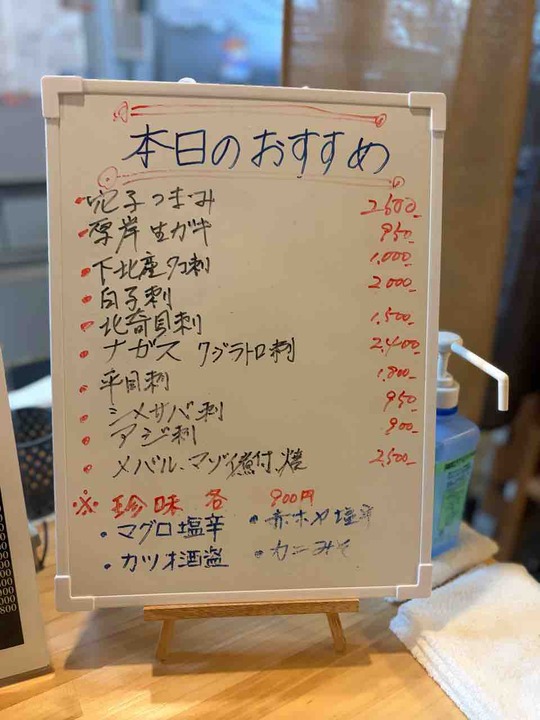 本日のおすすめ
・穴子つまみ 2,500-
・厚岸生ガキ 950-
・下北産タコ刺 1,000-
・白子刺 2,000-
・北寄貝刺 1,500-
・ナガス クジラトロ刺 2,400-
・平目刺 1,800-
・シメサバ刺 950-
・アジ刺 900-
・メバル、マゾイ煮付、焼 2,500-
※ 珍味 各 900円
・マグロ塩辛 ・赤ホヤ塩辛
・カツオ酒盗 ・カニみそ